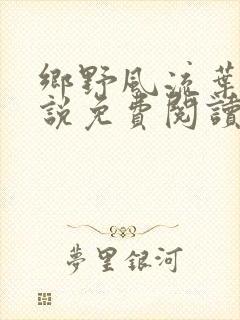 鄉野風流葉
說免費閱讀
夢里銀河